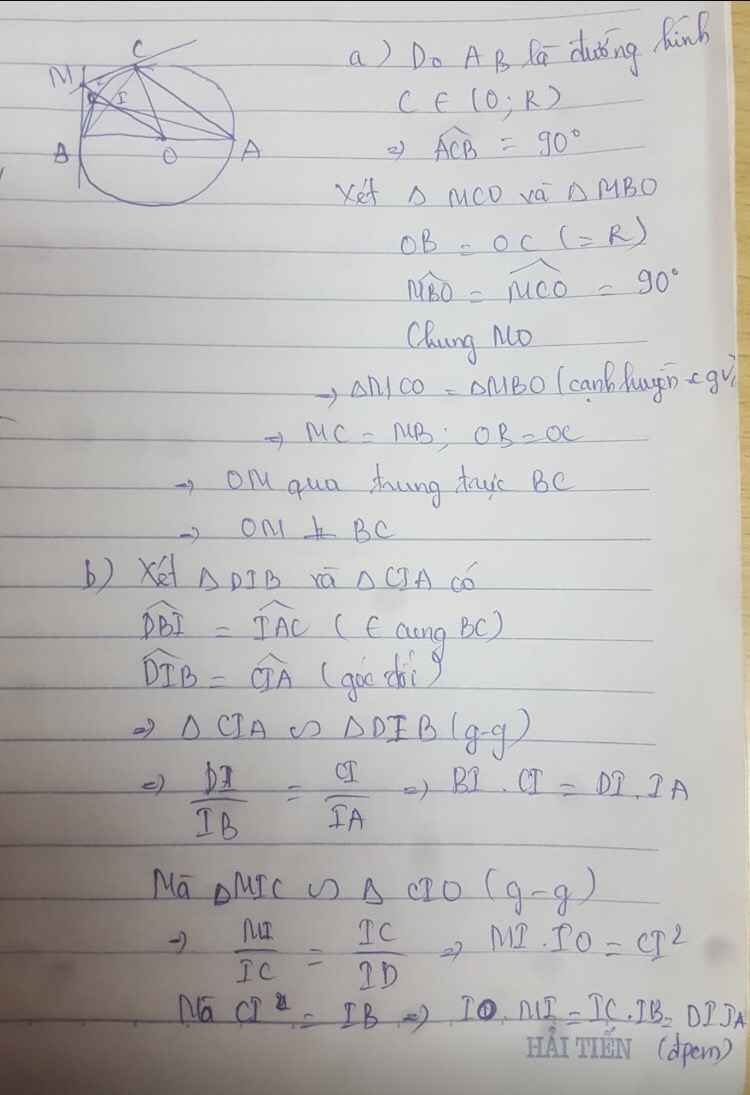 C
M
I
B
O
A
a) Do AB là đường kính
C ∈ (O; R)
=> ACB = 90°
Xét Δ MCO và Δ MBO
OB = OC (= R)
MBO = MCO = 90°
Chung MO
→ ΔMCO = ΔMBO (cạnh huyền - cgv)
=> MC = MB; OB = OC
→ OM qua trung trực BC
→ OM ⊥ BC
b) Xét Δ DIB và Δ CIA có
DBI = IAC (∈ cung BC)
DIB = CIA (góc đối)
=> Δ CIA ∽ ΔDIB (g-g)
=> DI/IB = CI/IA => BI . CI = DI . IA
Mà ΔMIC ∽ Δ CIO (g-g)
→ MI/IC = IC/ID => MI . IO = CI²
Mà CI = IB => IO. MI = IC. IB = DI IA
HẢI TIẾN (đpcm)